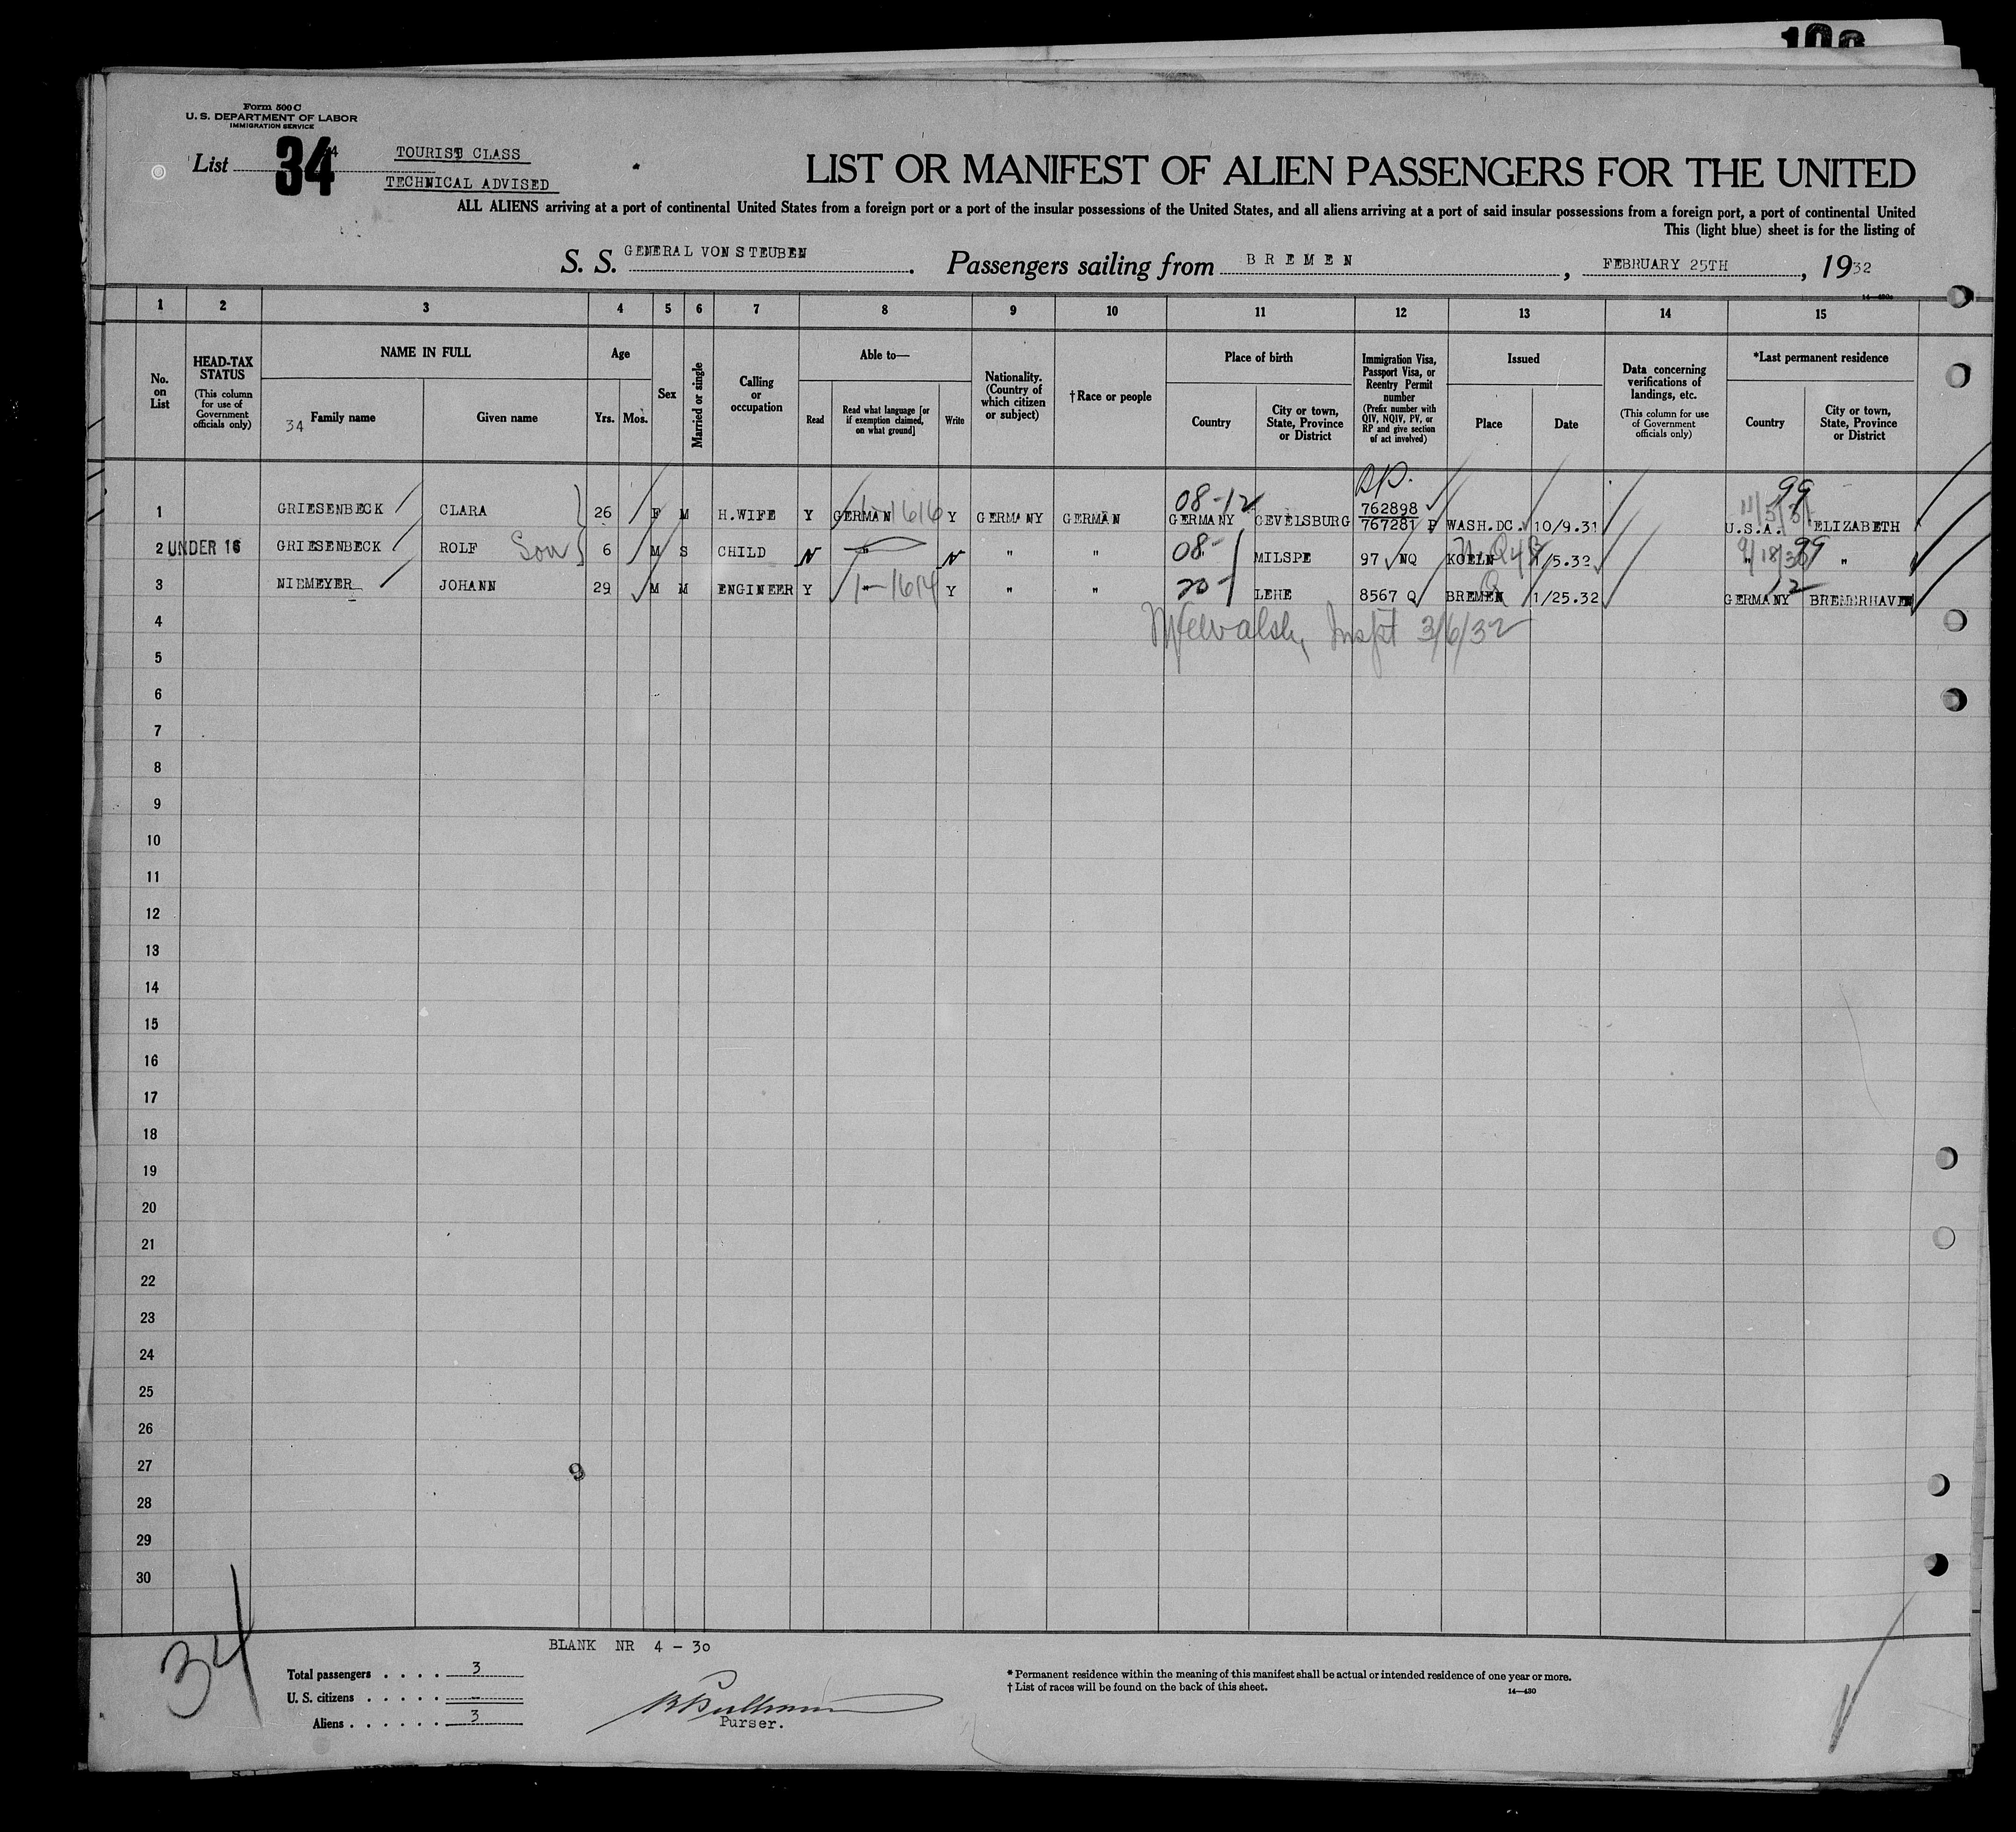 Form 500 C
U. S. DEPARTMENT OF LABOR
IMMIGRATION SERVICE
List 34
TOURIST CLASS
TECHNICAL ADVISED
LIST OR MANIFEST OF ALIEN PASSENGERS FOR THE UNITED
ALL ALIENS arriving at a port of continental United States from a foreign port or a port of the insular possessions of the United States, and all aliens arriving at a port of said insular possessions from a foreign port, a port of continental United
This (light blue) sheet is for the listing of
S. S. GENERAL VON STEUBEN. Passengers sailing from BREMEN, FEBRUARY 25TH, 1932
1 2 3 4 5 6 7 8 9 10 11 12 13 14 15
No. on List
HEAD-TAX STATUS (This column for use of Government officials only)
NAME IN FULL
34 Family name
Given name
Age
Yrs. Mos.
Sex
Married or single
Calling or occupation
Able to—
Read
Read what language [or if exemption claimed, on what ground]
Write
Nationality. (Country of which citizen or subject)
†Race or people
Place of birth
Country
City or town, State, Province or District
Immigration Visa, Passport Visa, or Reentry Permit number (Prefix number with QIV, NQIV, PV, or RP and give section of act involved)
Issued
Place
Date
Data concerning verifications of landings, etc. (This column for use of Government officials only)
*Last permanent residence
Country
City or town, State, Province or District
1 GRIESENBECK CLARA 26 F M H.WIFE Y GERMAN 1-1616 Y GERMANY GERMAN 08-12 GERMANY GEVELSBURG RP. 762898 767281 P WASH.DC. 10/9.31 99 11/5/31 U.S.A. ELIZABETH
2 UNDER 16 GRIESENBECK ROLF Son 6 M S CHILD N " N " " 08- MILSPE 97 NQ KOELN 1/5.32 99 9/18/30 " "
3 NIEMEYER JOHANN 29 M M ENGINEER Y " 1-1614 Y " " 20- LEHE 8567 Q BREMEN Q 1/25.32 12 GERMANY BREMERHAVEN
4 Inspt 3/6/32
5
6
7
8
9
10
11
12
13
14
15
16
17
18
19
20
21
22
23
24
25
26
27 9
28
29
30
34
BLANK NR 4 - 30
Total passengers . . . . 3
U. S. citizens . . . . . —
Aliens . . . . . . 3
Purser.
* Permanent residence within the meaning of this manifest shall be actual or intended residence of one year or more.
† List of races will be found on the back of this sheet.
14—430